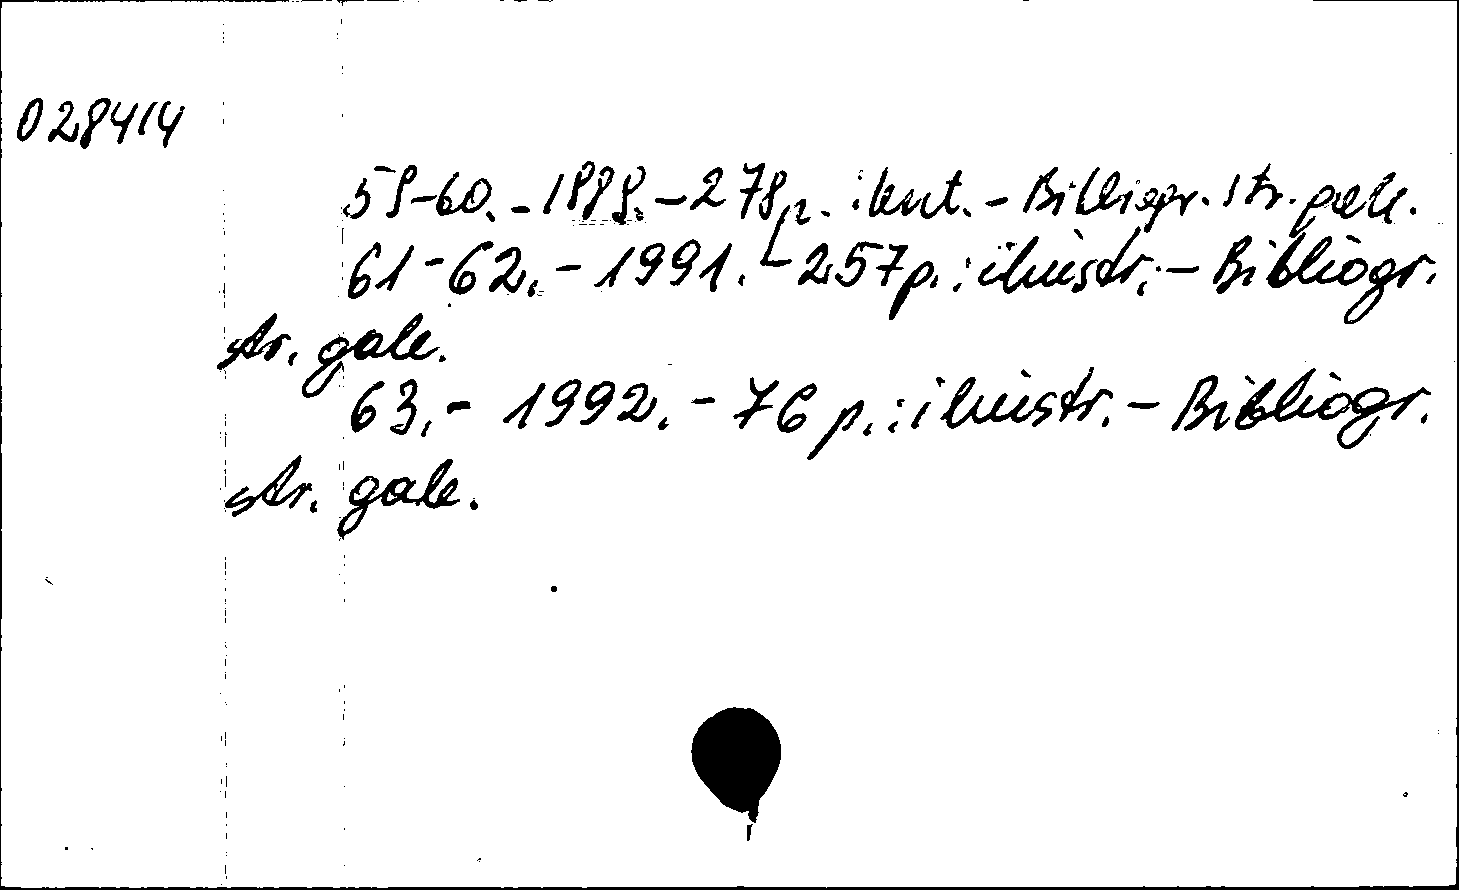 028414
59-60. - 1989. - 278 p. : iliust. - Bibliogr. str. gale.
61-62. - 1991. - 257 p. : iliustr. - Bibliogr.
str. gale.
63. - 1992. - 76 p. : iliustr. - Bibliogr.
str. gale.